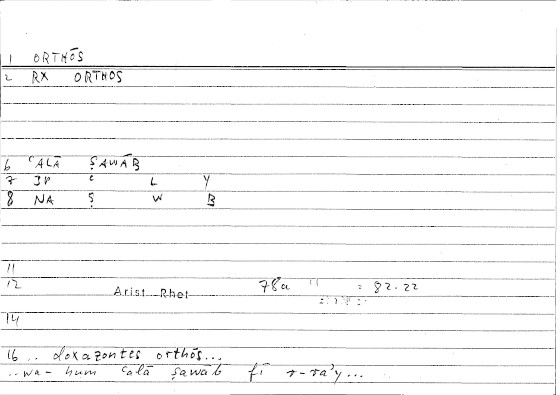 1 ORTHŌS
2 RX ORTHOS
6 ʿALĀ ṢAWĀB
7 IP ʿ L Y
8 NA Ṣ W B
11
12 Arist Rhet 78a 11 = 82.22
14
16 .. doxazontes orthōs...
..wa-hum ʿalā ṣawāb fī r-raʾy...